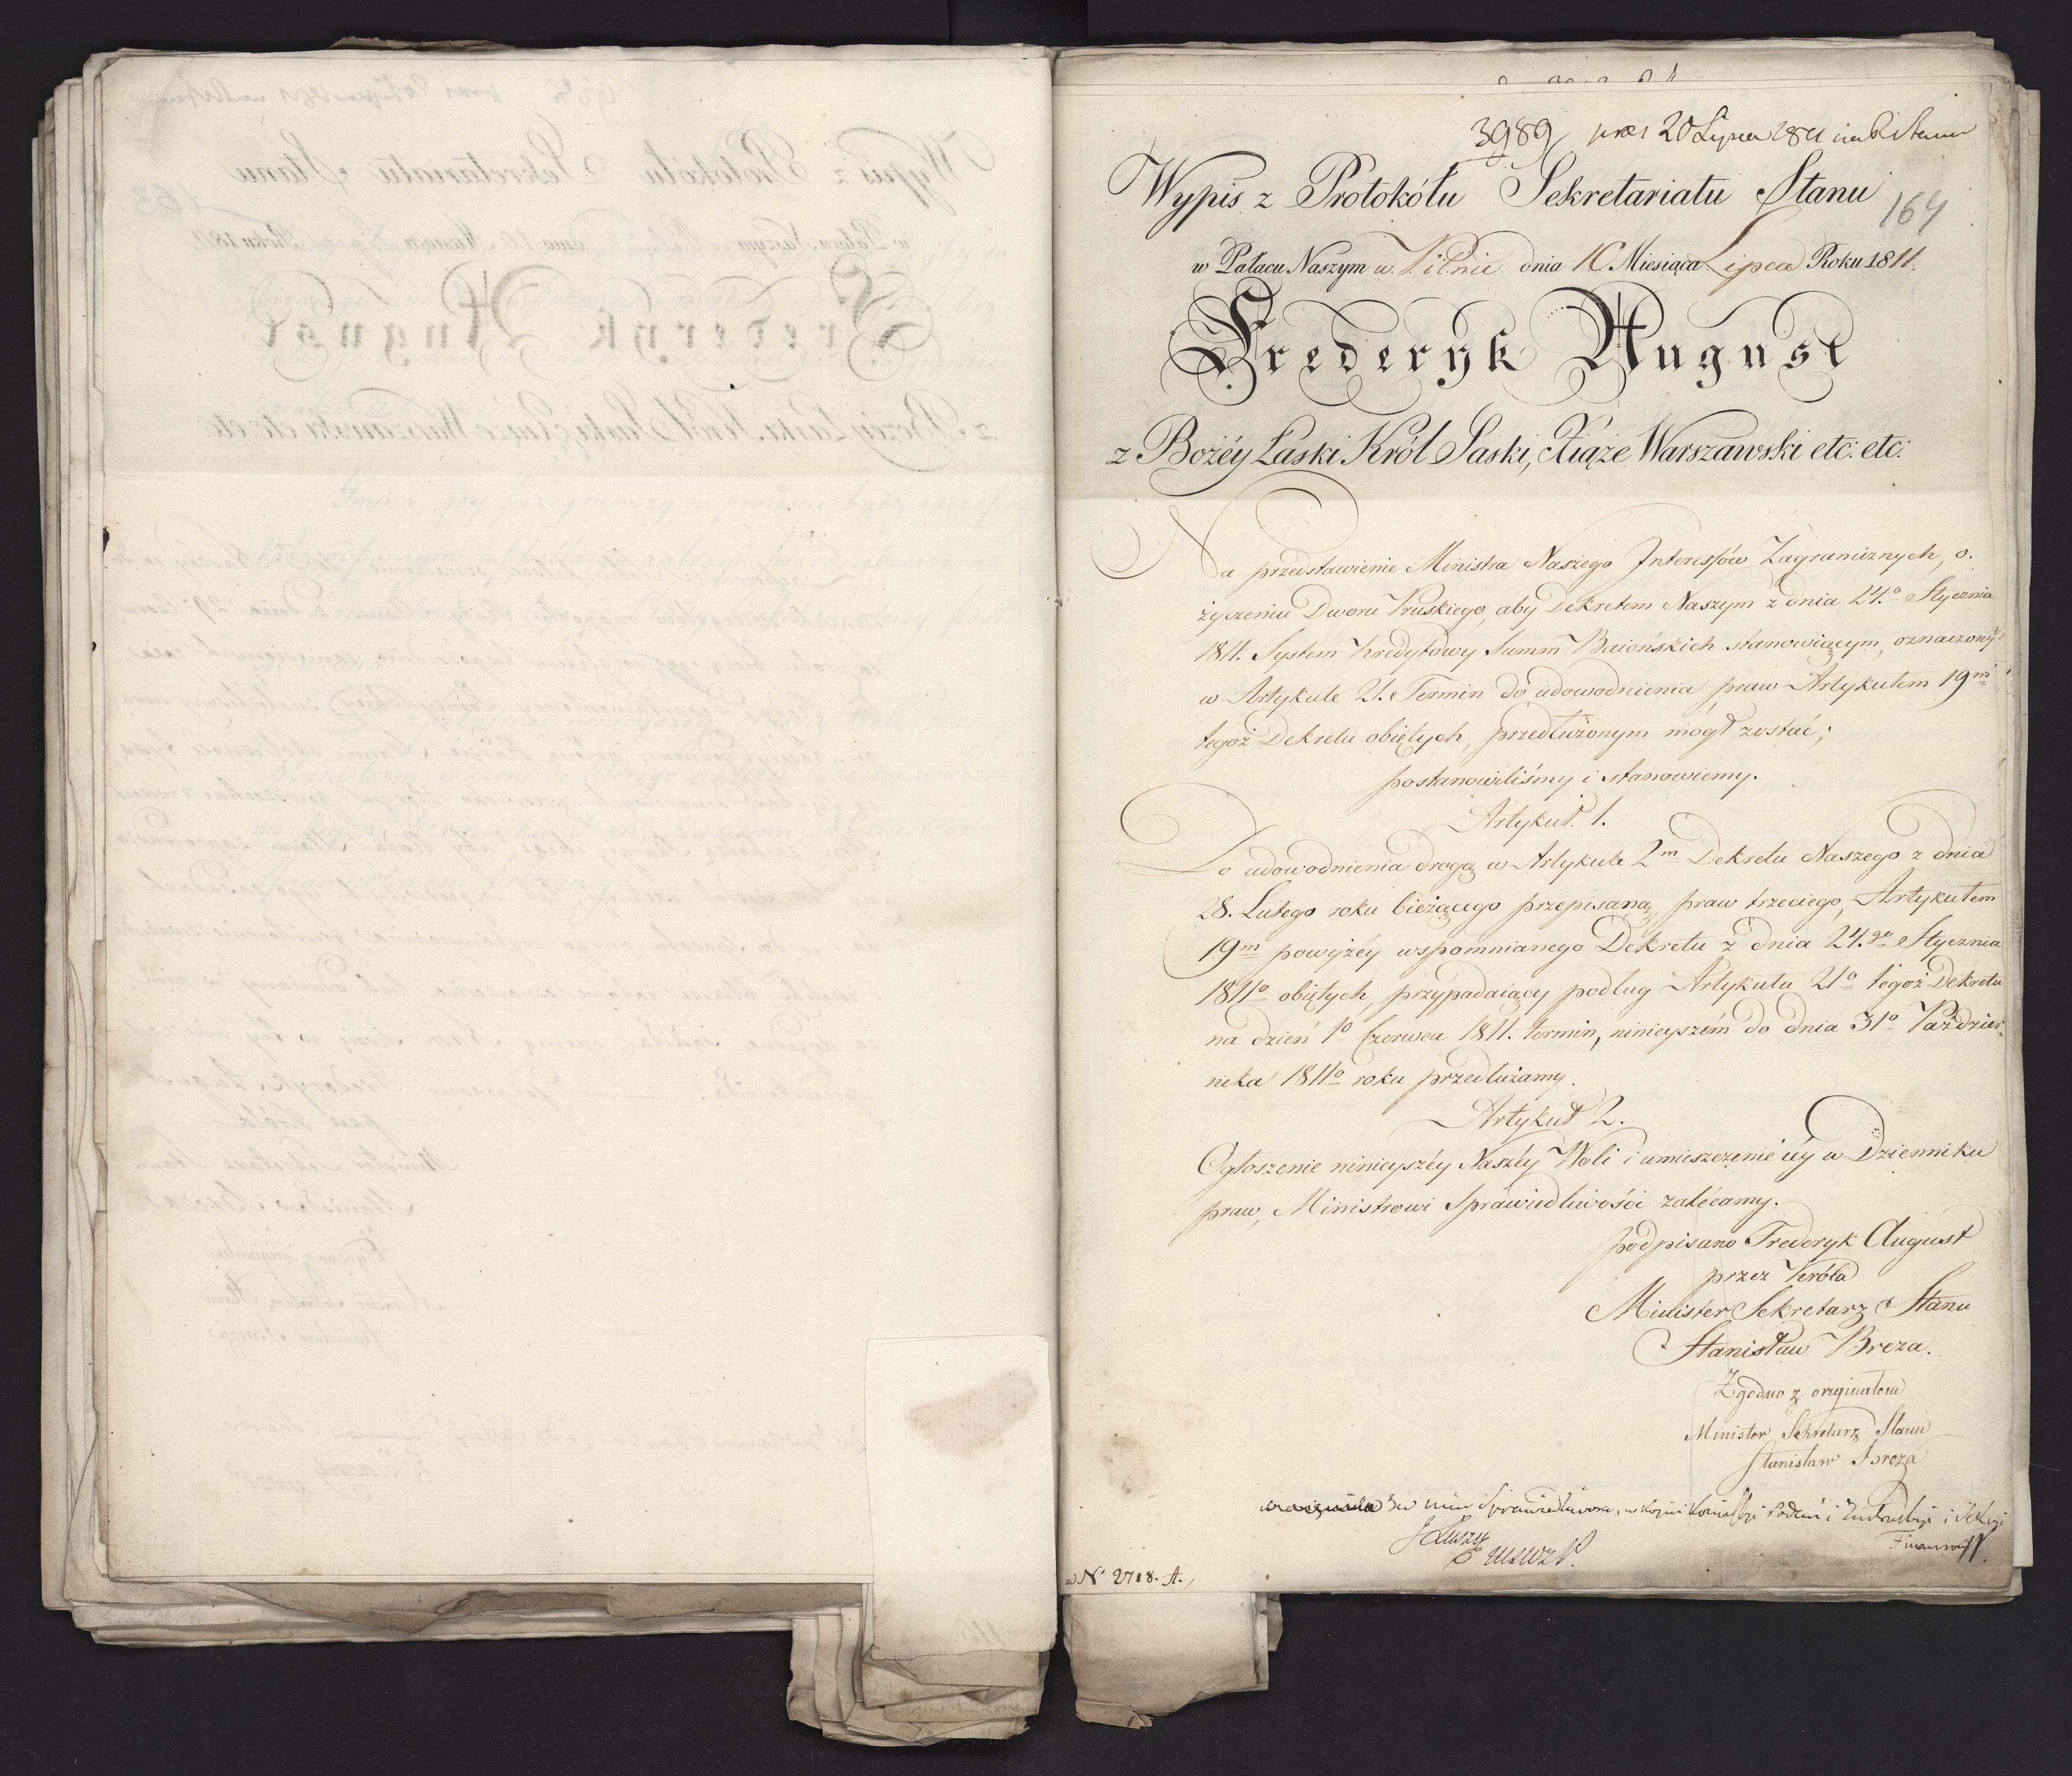 3989 pres 20 Lipca 1811 na R Stanu
Wypis z Protokółu Sekretariatu Stanu
164
w Pałacu Naszym w Pilnic dnia 10 Miesiąca Lipca Roku 1811.
Frederyk August
z Bożéy Łaski Król Saski, Xiąże Warszawski etc: etc:
Na przedstawienie Ministra Naszego Interessów Zagranicznych, o
życzeniu Dworu Pruskiego, aby Dekretem Naszym z dnia 24.º Stycznia
1811. System Kredytowy Summ Baiońskich stanowiącym, oznaczony
w Artykule 21. Termin do udowodnienia praw Artykułem 19m
tegoż Dekretu obiętych, przedłużonym mógł zostać;
postanowiliśmy i stanowiemy.
Artykuł. 1.
Do udowodnienia drogą w Artykule 2m Dekretu Naszego z dnia
28. Lutego roku bieżącego przepisaną, praw trzeciego, Artykułem
19m powyżéy wspomnianego Dekretu z dnia 24.go Stycznia
1811º obiętych, przypadaiący podług Artykułu 21º tegoż Dekretu
na dzień 1º Czerwca 1811. termin, ninieyszém do dnia 31º Paździer-
nika 1811º roku przedłużamy.
Artykuł 2.
Ogłoszenie ninieyszéy Naszéy Woli i umieszczenie iéy w Dzienniku
praw, Ministrowi Sprawiedliwości zalécamy.
podpisano Frederyk August
przez Króla
Minister Sekretarz Stanu
Stanisław Breza.
Zgodno z oryginałem
Minister Sekretarz Stanu
Stanisław Breza
w min Sprawiedliwosci, w kopii Kommissyi Podań i Instrukcyi i Sekcyi
Finansowey
w Nº 2718. A.